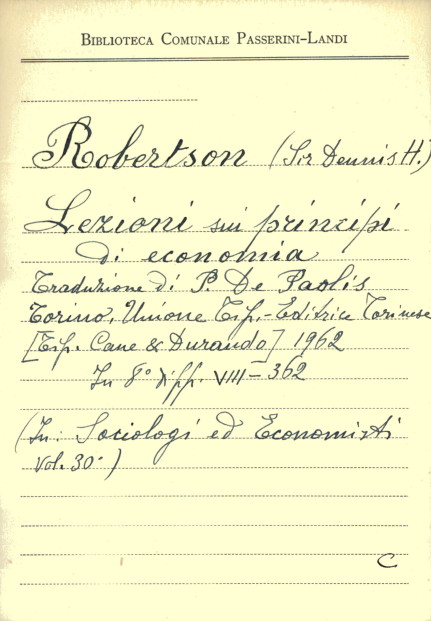 BIBLIOTECA COMUNALE PASSERINI-LANDI
Robertson (Sir Dennis H.)
Lezioni sui principi
di economia
Traduzione di P. De Paolis
Torino, Unione Tip.-Editrice Torinese
[Tip. Cane & Durando] 1962
In 8° di pp. VIII-362
(In: Sociologi ed Economisti
vol. 30°)
C